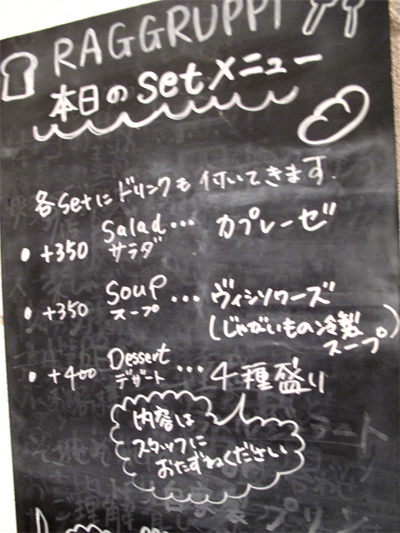 RAGGRUPPI
本日のsetメニュー
各Setにドリンクも付いてきます.
• +350 Salad サラダ … カプレーゼ
• +350 Soup スープ … ヴィシソワーズ
(じゃがいもの冷製スープ)
• +400 Dessert デザート … 4種盛り
内容は
スタッフに
おたずねください